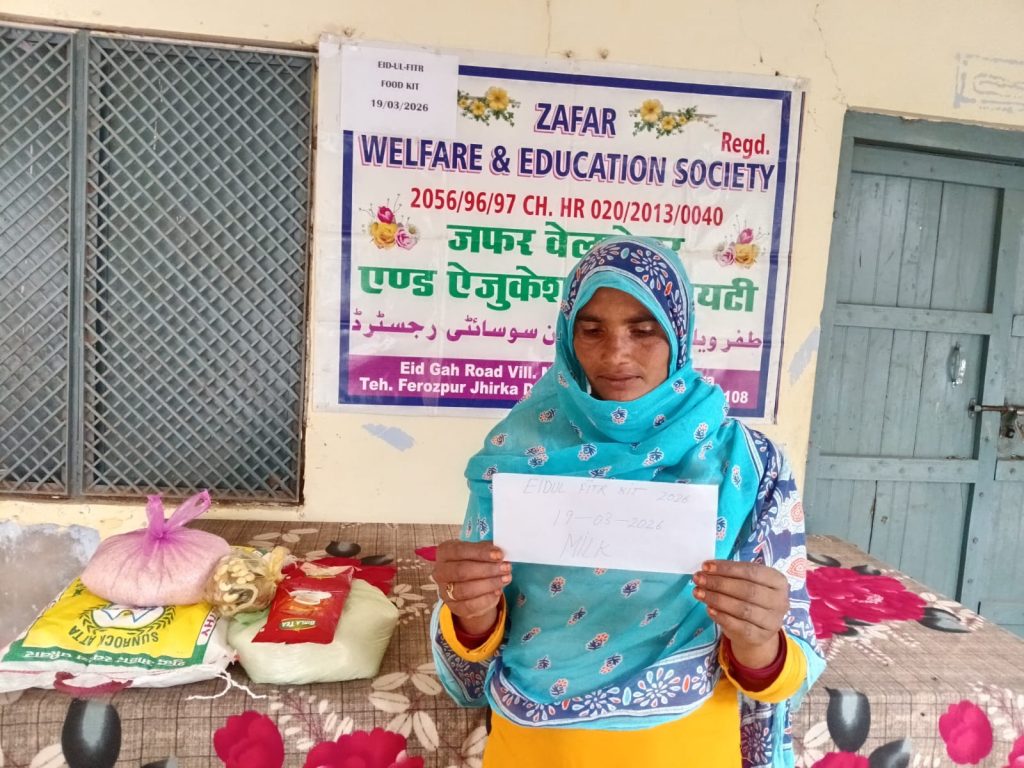 EID-UL-FITR
FOOD KIT
19/03/2026
ZAFAR
Regd.
WELFARE & EDUCATION SOCIETY
2056/96/97 CH. HR 020/2013/0040
जफर
एण्ड
سوسائٹی رجسٹرڈ
Eid Gah Road Vill.
Teh. Ferozpur Jhirka
108
EIDUL FITR KIT 2026
19-03-2026
MILK
SUNROCK ATTA